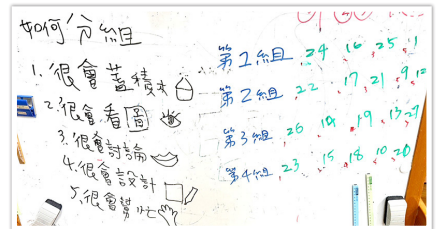 如何分組
1. 很會蓋積木
2. 很會看圖
3. 很會討論
4. 很會設計
5. 很會幫忙
第1組 24 16 25 1
第2組 22 17 21 9 12
第3組 26 19 13 27
第4組 23 15 18 10 20